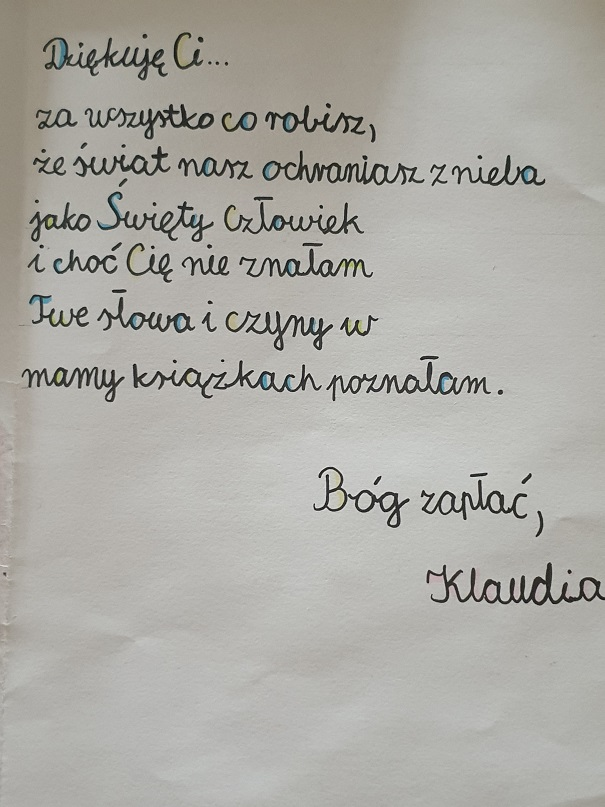 Dziękuję Ci...
za wszystko co robisz,
że świat nasz ochraniasz z nieba
jako Święty Człowiek
i choć Cię nie znałam
Twe słowa i czyny w
mamy książkach poznałam.
Bóg zapłać,
Klaudia